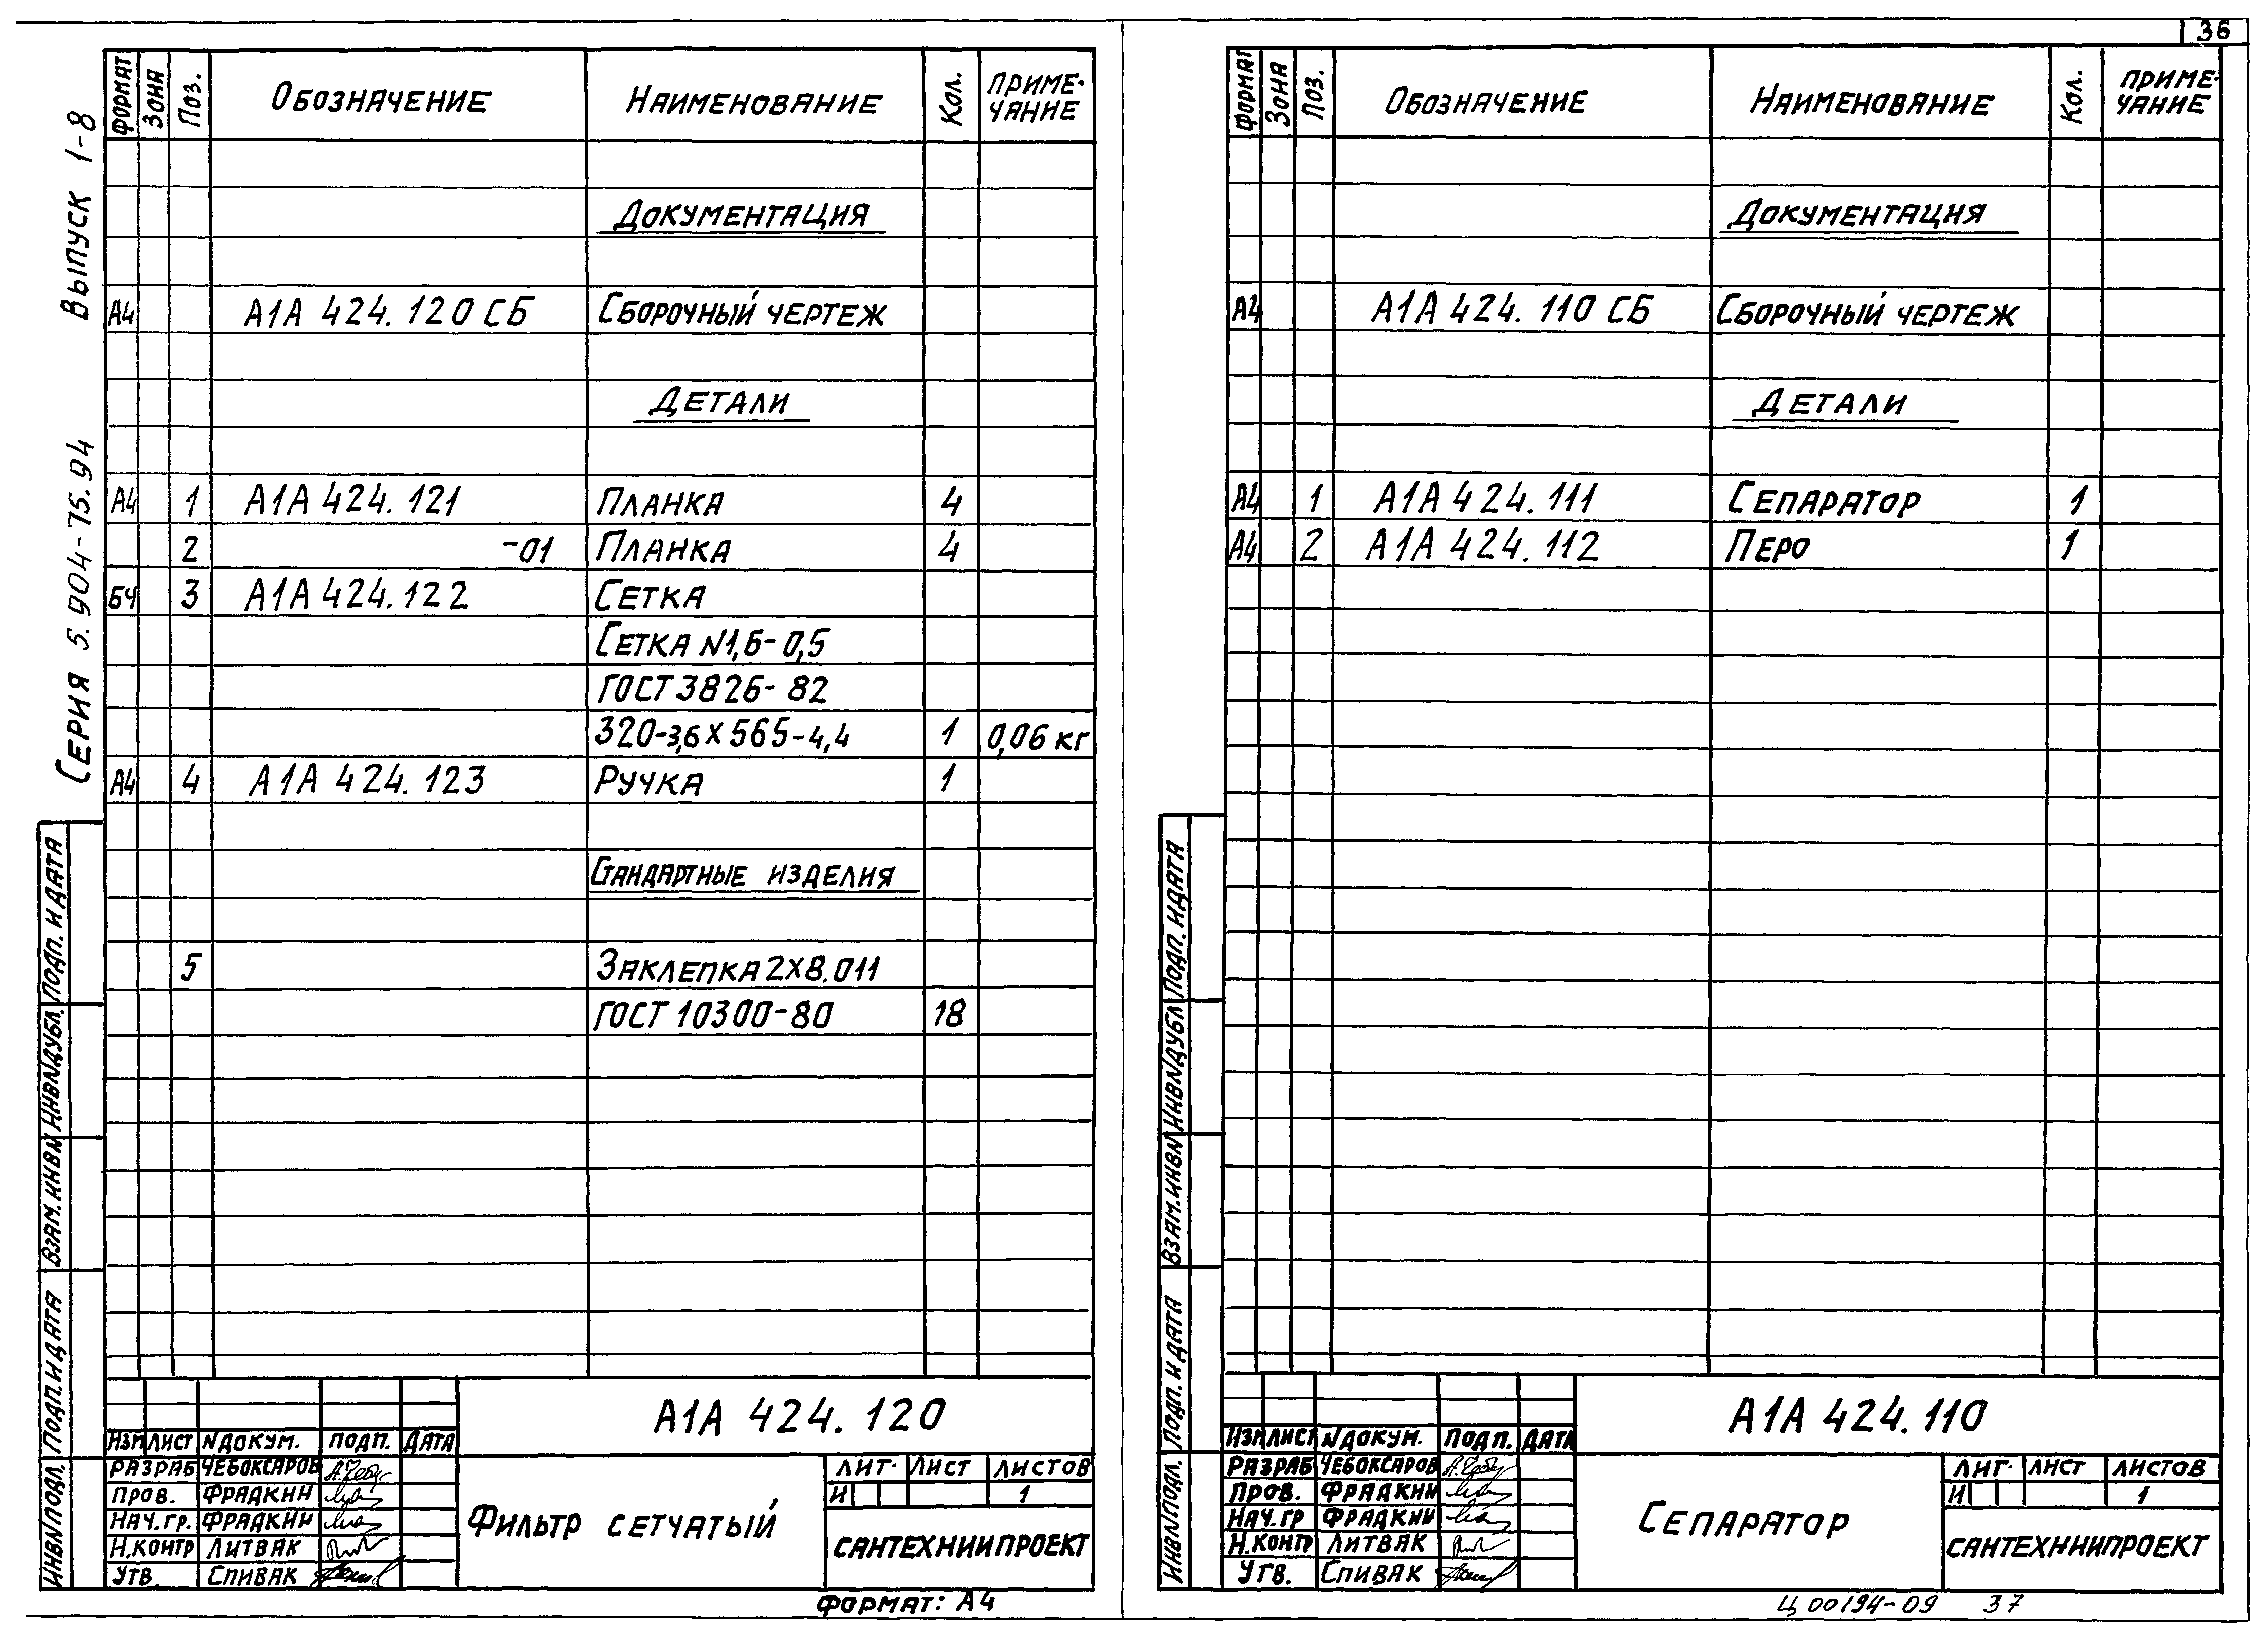 36
Выпуск 1-8
Серия 5.904-75.94
Формат Зона Поз. Обозначение Наименование Кол. Приме-
чание
Документация
А4 А1А 424.120 СБ Сборочный чертеж
Детали
А4 1 А1А 424.121 Планка 4
2 -01 Планка 4
БЧ 3 А1А 424.122 Сетка
Сетка N1,6-0,5
ГОСТ 3826-82
320-3,6х565-4,4 1 0,06 кг
А4 4 А1А 424.123 Ручка 1
Стандартные изделия
5 Заклепка 2х8.011
ГОСТ 10300-80 18
Подп. и дата
Инв N дубл.
Взам. инв N
Подп. и дата
Инв N подл.
А1А 424.120
Изм Лист N докум. Подп. Дата
Разраб Чебоксаров
Пров. Фрадкин
Нач. гр. Фрадкин
Н.контр Литвак
Утв. Спивак
Фильтр сетчатый
Лит. Лист Листов
И 1
Сантехниипроект
Формат: А4
Формат Зона Поз. Обозначение Наименование Кол. Приме-
чание
Документация
А4 А1А 424.110 СБ Сборочный чертеж
Детали
А4 1 А1А 424.111 Сепаратор 1
А4 2 А1А 424.112 Перо 1
Подп. и дата
Инв N дубл
Взам. инв N
Подп. и дата
Инв N подл.
А1А 424.110
Изм Лист N докум. Подп. Дата
Разраб Чебоксаров
Пров. Фрадкин
Нач. гр Фрадкин
Н.контр Литвак
Утв. Спивак
Сепаратор
Лит. Лист Листов
И 1
Сантехниипроект
Ц00194-09 37